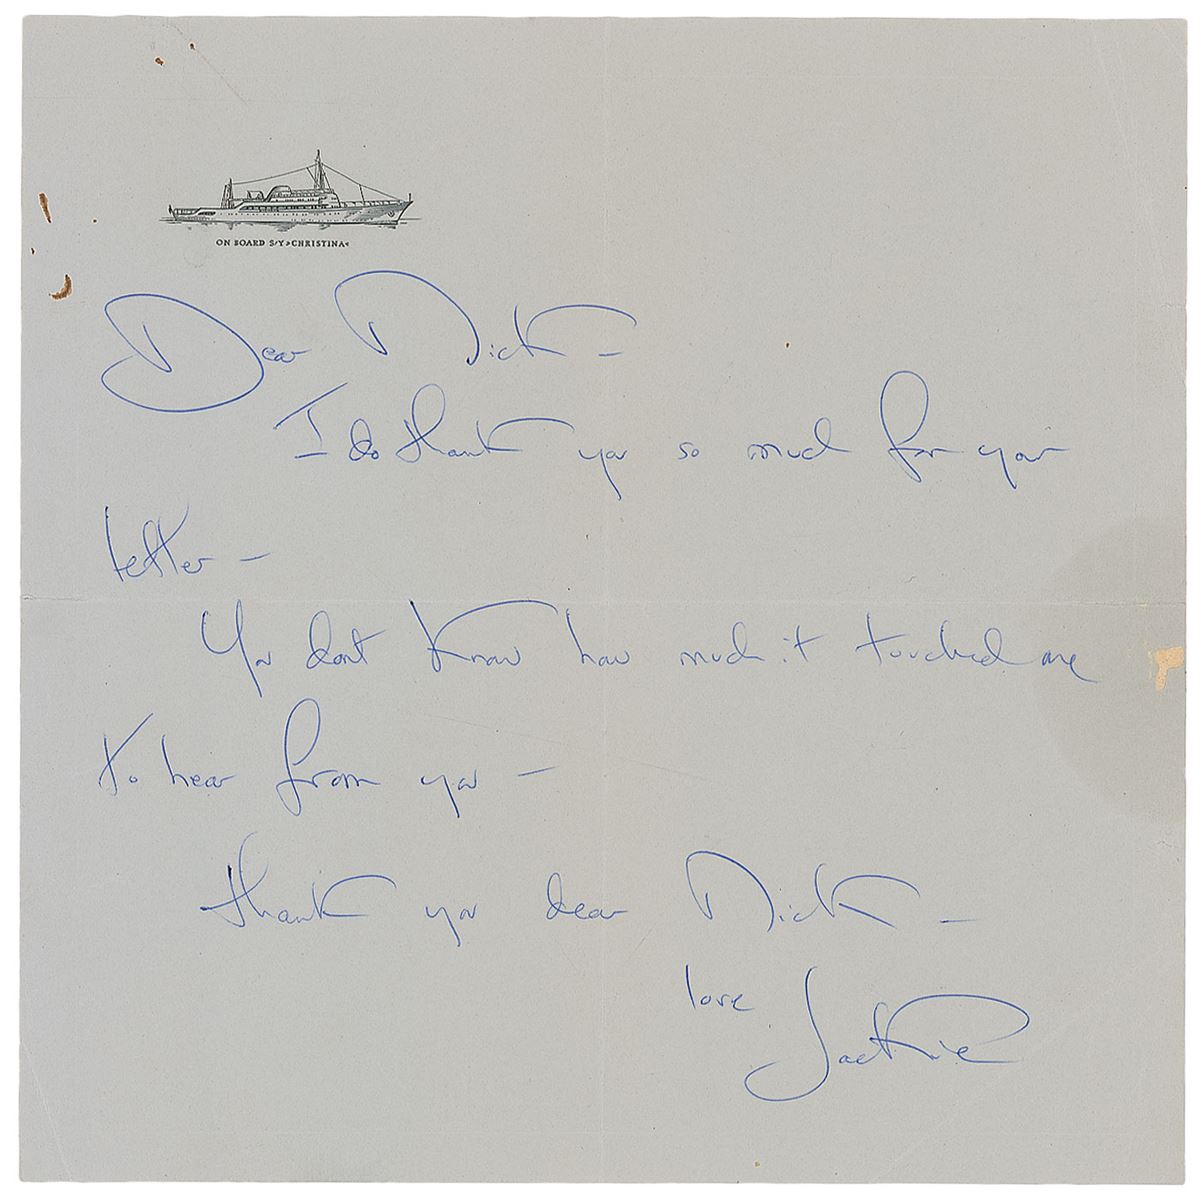 ON BOARD S/Y »CHRISTINA«
Dear Dick –
I do thank you so much for your
letter –
You dont know how much it touched me
to hear from you –
thank you dear Dick –
love Jackie